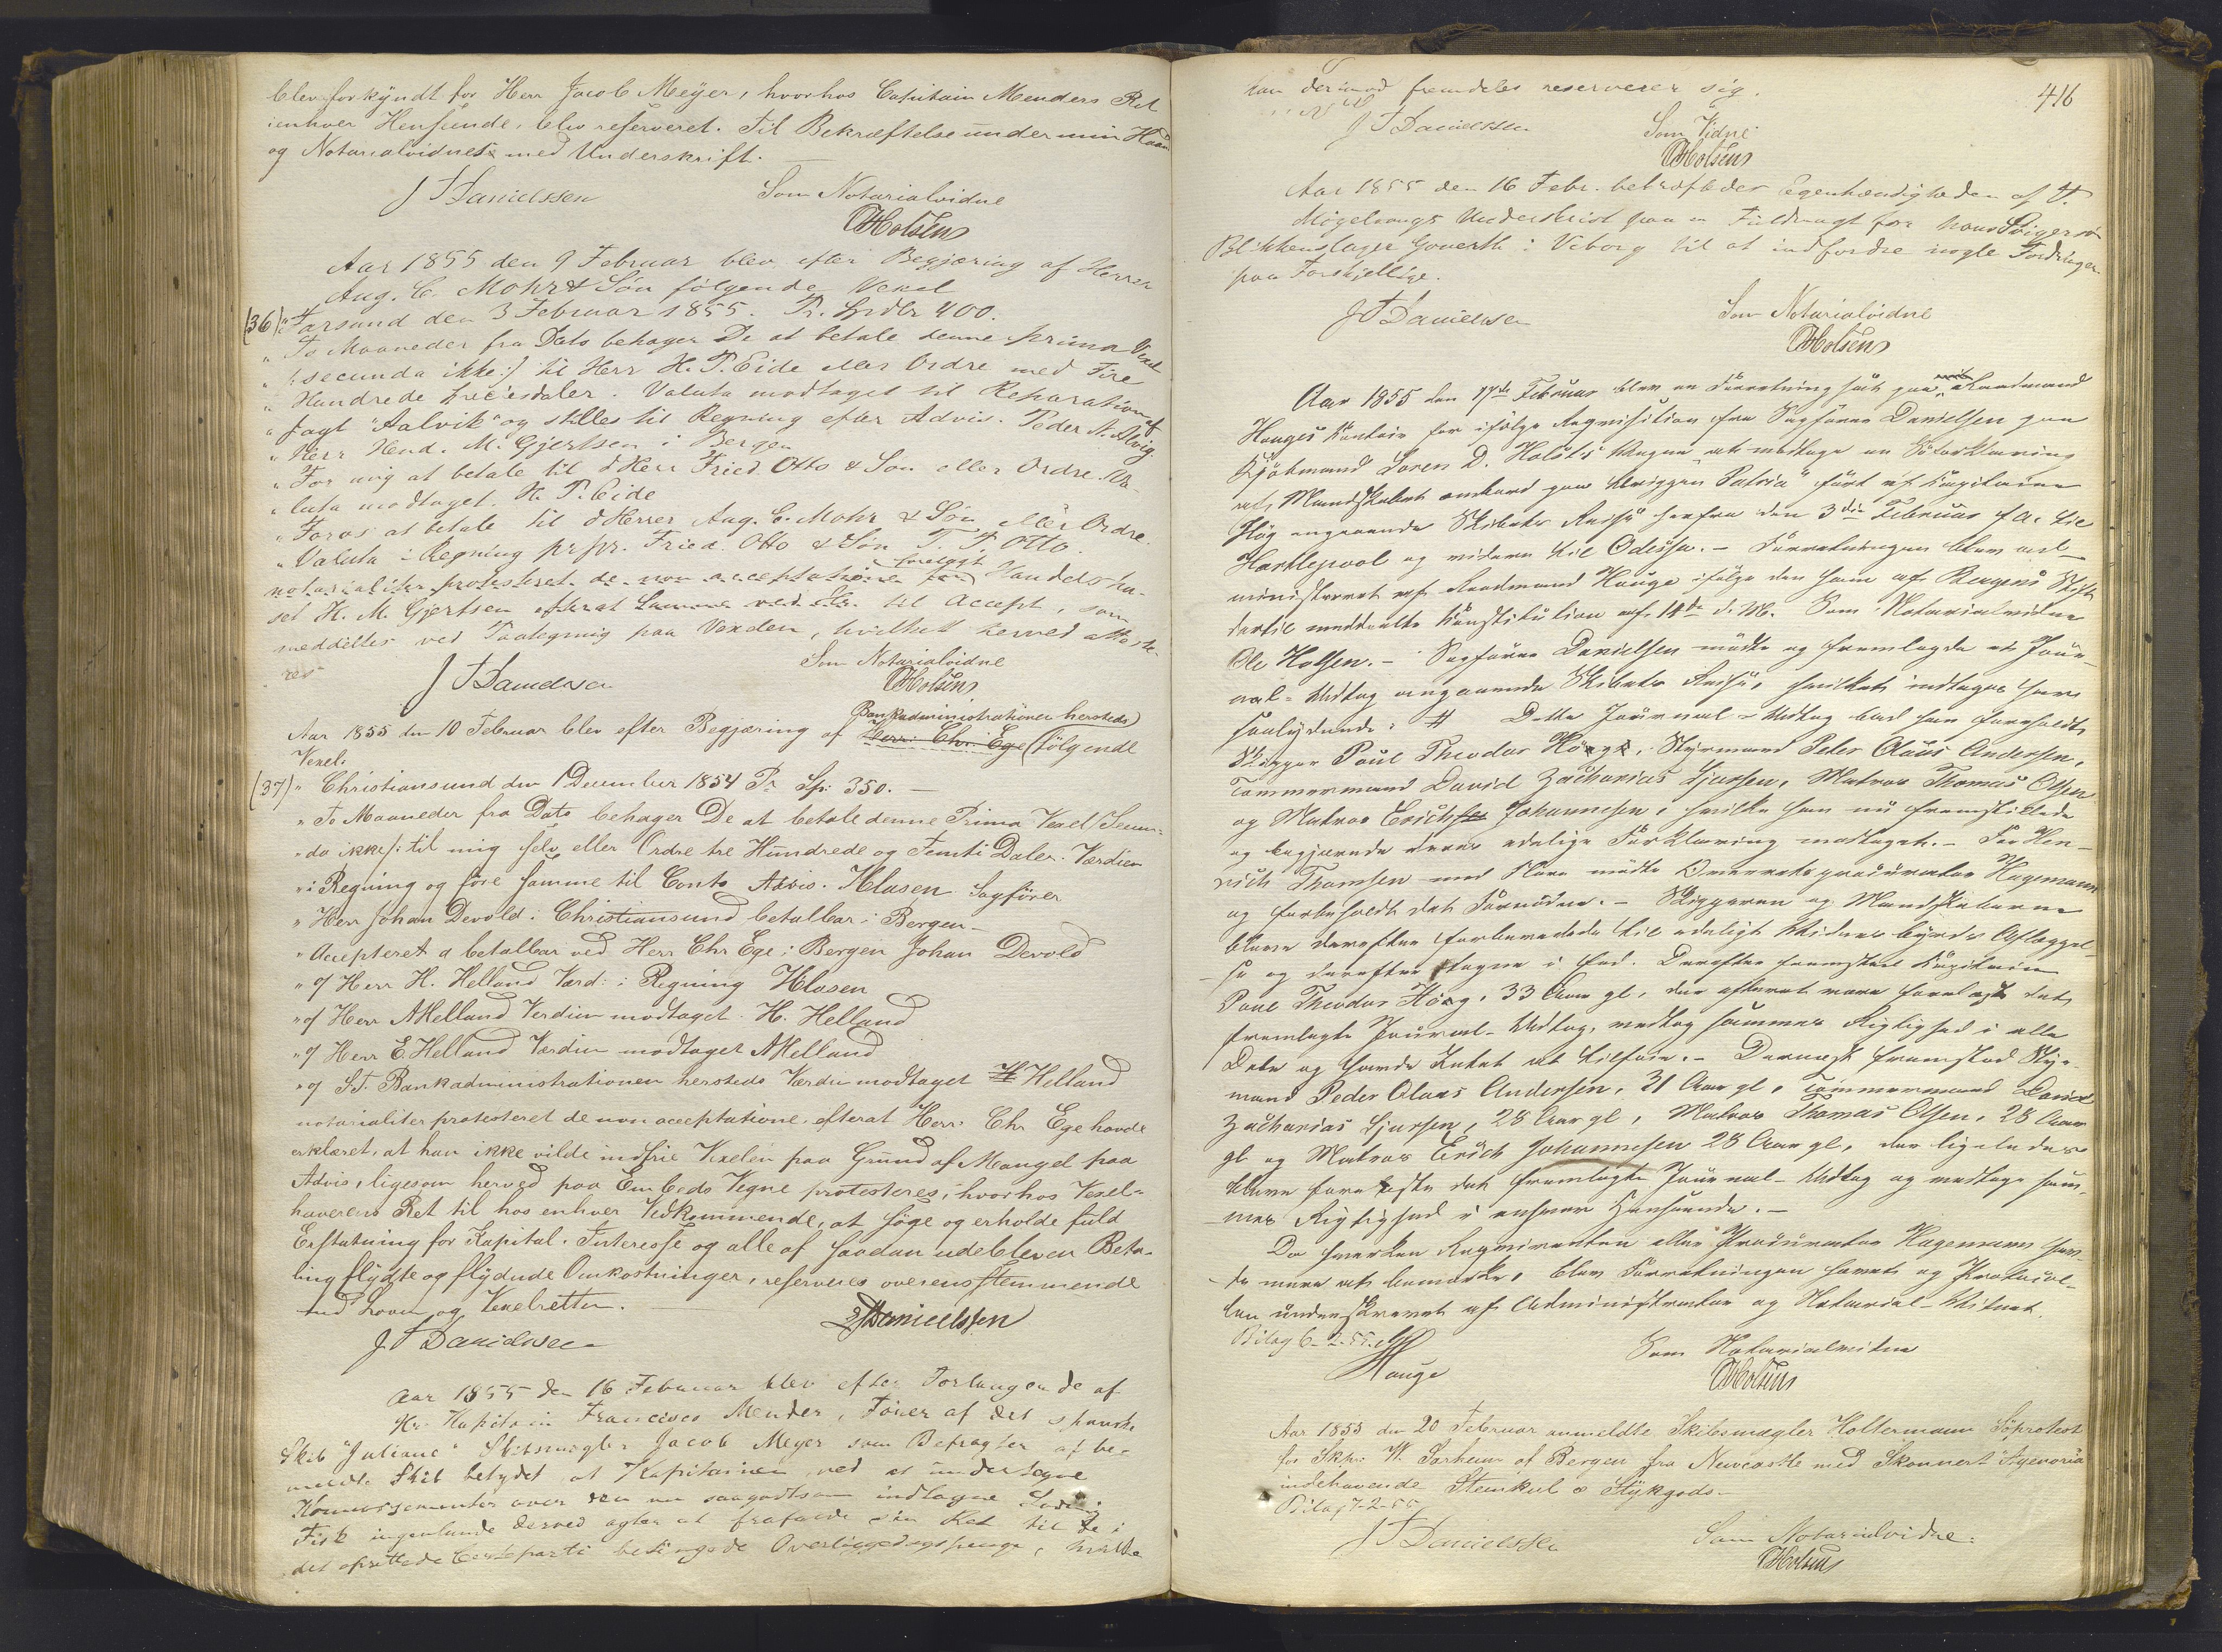 blev forkyndt for Herr Jacob Meyer, hvorhos Capitain Menders Ret
ienhver Henseende, blev reserveret. Til Bekræftelse under min Haand
og Notarialvidnets med Underskrift.
J T Danielssen Som Notarialvidne
OHolsen
Aar 1855 den 9 Februar blev efter Begjæring af Herrer
Aug. C. Mohr & Søn følgende Vexel
(36) "Farsund den 3 Februar 1855. Pr. Spdlr 400.
" To Maaneder fra Dato behager De at betale denne prima Vexel
" (:secunda ikke:) til Herr H. P. Eide eller Ordre med Fire
" Hundrede Speciesdaler. Valuta modtaget til Reparation af
" Jagt "Aalvik" og stilles til Regning efter Advis. Peder N. Alvig.
" Herr Hend. M. Gjertsen i Bergen
" For mig at betale til d'Herr Fried. Otto & Søn eller Ordre. Va-
" luta modtaget. H. P. Eide
" For os at betale til d'Herrer Aug. C. Mohr & Søn eller Ordre.
" Valuta i Regning pr pr. Fried. Otto & Søn T. T. Otto.
notarialiter protesteret de non acceptatione forelagt Handelshu-
set H. M. Gjertsen efterat Samme ved til Accept, som
meddeltes ved Paategning paa Vexelen, hvilket herved atteste-
res
J T Danielssen Som Notarialvidne
OHolsen
Bankadministrationen hersteds
Aar 1855 den 10 Februar blev efter Begjæring af Herr Chr Ege følgende
Vexel:
(37) " Christiansund den 1 December 1854 Pr Sp: 350. —
" To Maaneder fra Dato behager De at betale denne Prima Vexel (Secun-
" da ikke): til mig selv eller Ordre tre Hundrede og Femti Daler. Værdien
" i Regning og føre samme til Conto Advis. Klasen Sagfører
" Herr Johan Devold i Christiansund betalbar i Bergen —
" Accepteret a betalbar ved Herr Chr Ege i Bergen Johan Devold
" of Herr H. Helland Værd: i Regning Klasen
" of Herr AHelland Verdien modtaget. H. Helland
" of Herr E. Helland Værdien modtaget AHelland
" of S.T. Bankadministrationen hersteds Værdi modtaget Helland
notarialiter protesteret de non acceptatione, efterat Herr Chr Ege havde
erklæret, at han ikke vilde indfrie Vexelen paa Grund af Mangel paa
Advis, ligesom herved paa Embeds Vegne protesteres, hvorhos Vexel-
haverens Ret til hos enhver Vedkommende, at søge og erholde fuld
Erstatning for Kapital, Interesse og alle af saadan udebleven Beta-
ling flydte og flydende Omkostninger, reserveres overensstemmende
med Loven og Vexelretten.
J T Danielssen Danielssen
Aar 1855 den 16 Februar blev efter Forlangende af
Hr. Kapitain Francisco Mender, Fører af det spanske
Skib "Juliane" Skibsmægler Jacob Meyer som Befragter af be-
meldte Skib betydet at Kapitainen ved at undertegne
Konnossementer over den nu saagodtsom indtagne Ladning
Fisk ingenlunde derved agter at frafalde sin Ret til de i
det oprettede Certeparti betingede Overliggedagspenge, hvilke
416
han derimod fremdeles reserverer sig.
J T Danielssen Som Vidne
OHolsen
Aar 1855 den 16 Febr. bekræftedes Egenhændigheden af
Underskrivt paa en Fuldmagt for hans Svigersøn
Blikkenslager Goverth i Viborg til at indfordre nogle Fordringer
paa Forskjellige.
J T Danielssen Som Notarialvidne
OHolsen
Aar 1855 den 17de Februar blev en Forretning sat paa Raadmand
Hauges Kontoir for ifølge Requisition fra Sagfører Danielssen paa
Kjøbmand Søren D. Holsts Vegne at modtage en Søforklaring
af Mandskabet ombord paa Briggen "Patria" ført af Kapitaine
Høeg angaaende Skibets Reise herfra den 3die Februar f. A. til
Hartlepool og videre til Odessa. — Forretningen blev ad-
ministreret af Raadmand Hauge ifølge den ham af Bergens Stift
dertil meddeelte Konstitution af 14de d. M. Som Notarialvidne
Ole Holsen. — Sagfører Danielsen mødte og fremlagde et Jour-
nal-Udtog angaaende Skibets Reise, hvilket indtages her
saalydende: # Dette Journal-Udtog bad han foreholdt
Skipper Poul Theodor Høeg, Styrmand Peder Olaus Andersen,
Tømmermand David Zacharias Sjursen, Matros Thomas Olsen
og Matros Erich Johannesen, hvilke han nu fremstillede
og begjærede deres edelige Forklaring modtaget. — For Hen-
rich Thomsen med Flere mødte Overretsprocurator Hagemann
og forbeholdt det Fornødne. — Skipperen og Mandskaberne
bleve derefter forberedede til edeligt Vidnesbyrds Aflæggel-
se og derefter tagne i Eed. Derefter fremstod Kapitain
Poul Theodor Høeg, 33 Aar gl, der efterat være forelæst det
fremlagte Journal-Udtog, vedtog sammes Rigtighed i alle
Dele og havde Intet at tilføie. — Dernæst fremstod Styr-
mand Peder Olaus Andersen, 31 Aar gl, Tømmermand David
Zacharias Sjursen, 28 Aar gl, Matros Thomas Olsen, 28 Aar
gl og Matros Erich Johannesen 28 Aar gl, der ligeledes
bleve forelæste det fremlagte Journal-Udtog og vedtoge sam-
mes Rigtighed i enhver Henseende. —
Da hverken Requirenten eller Procurator Hagemann hav-
de mere at bemærke, blev Forretningen hævet og Protocol-
len underskrevet af Administrator og Notarial-Vitnet.
Bilag 6-2-55.
Hauge Som Notarialvitne
OHolsen
Aar 1855 den 20 Februar anmeldte Skibsmægler Holtermann Søprotest
for Skp: W. Sørheim af Bergen fra Newcastle med Skonnert "Agenoria"
indehavende Steenkul & Stykgods —
Bilag 7-2-55
J T Danielssen Som Notarialvidne:
OHolsen